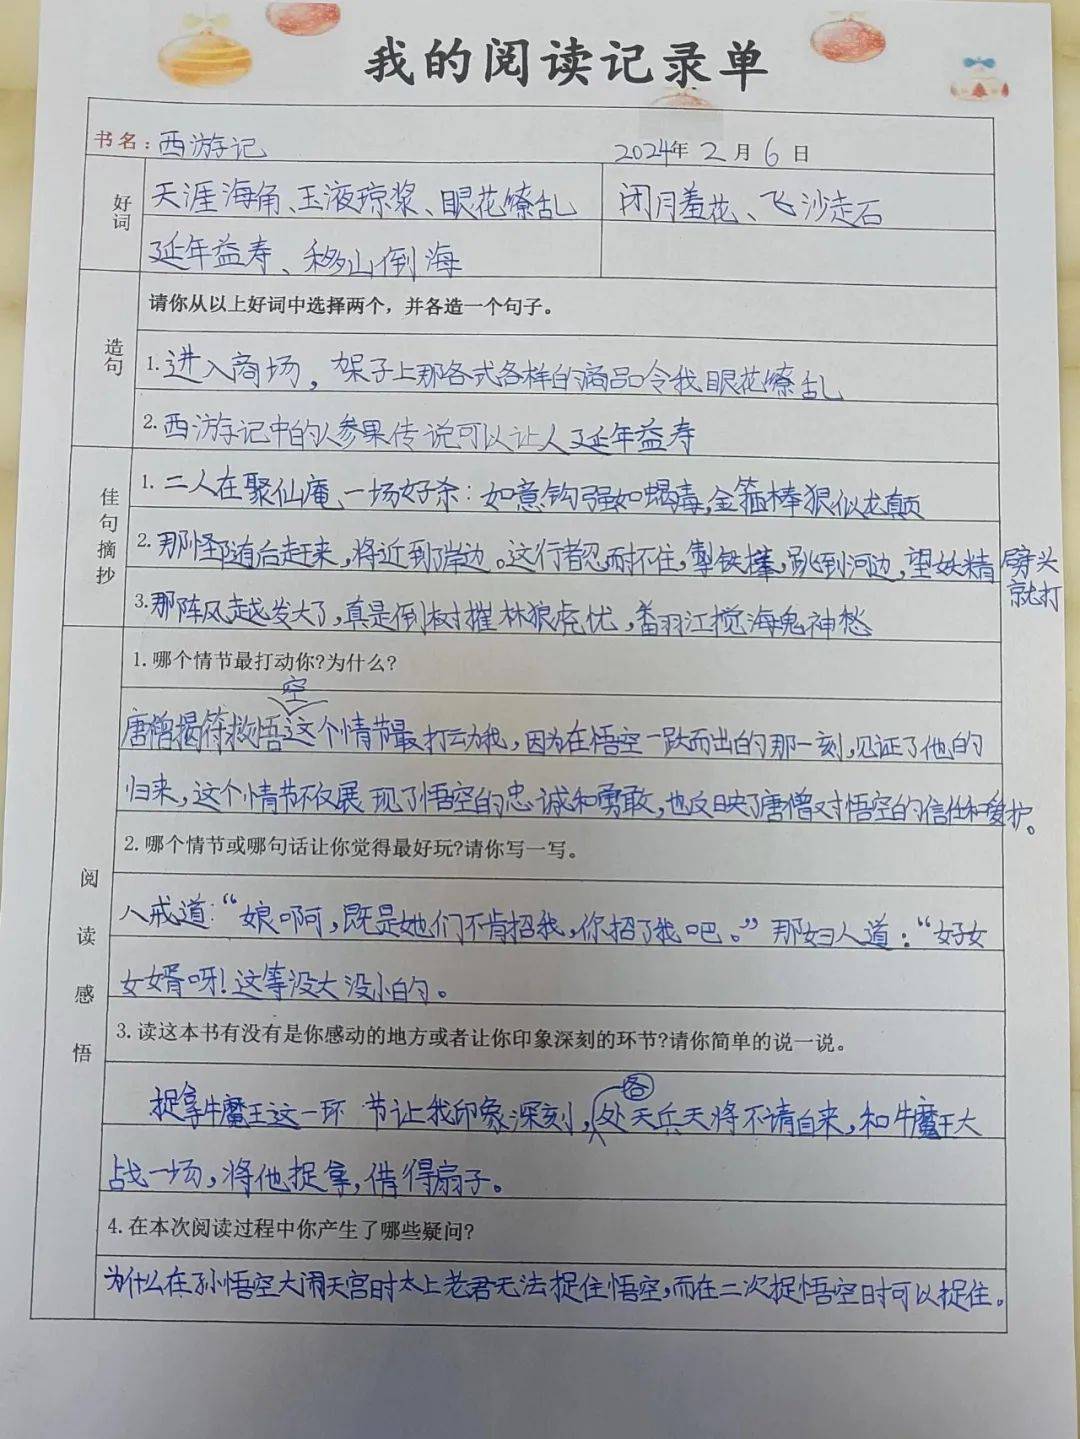 我的阅读记录单
书名：西游记 2024年2月6日
好词
天涯海角、玉液琼浆、眼花缭乱 闭月羞花、飞沙走石
延年益寿、移山倒海
造句
请你从以上好词中选择两个，并各造一个句子。
1.进入商场，架子上那各式各样的商品令我眼花缭乱
2.西游记中的人参果传说可以让人延年益寿
佳句摘抄
1.二人在聚仙庵一场好杀：如意钩强如蝎毒，金箍棒狠似龙巅
2.那怪随后赶来，将近到了岸边。这行者忍耐不住，掣铁棒，跳到河边，望妖精劈头
就打
3.那阵风越发大了，真是倒树摧林狼虎忧，番羽江搅海鬼神愁
阅读感悟
1.哪个情节最打动你?为什么?
唐僧揭符救悟空这个情节最打动我，因为在悟空一跃而出的那一刻，见证了他的
归来，这个情节不仅展现了悟空的忠诚和勇敢，也反映了唐僧对悟空的信任和爱护。
2.哪个情节或哪句话让你觉得最好玩?请你写一写。
八戒道：“娘啊，既是她们不肯招我，你招了我吧。”那妇人道：“好女
女婿呀！这等没大没小的。
3.读这本书有没有是你感动的地方或者让你印象深刻的环节?请你简单的说一说。
捉拿牛魔王这一环节让我印象深刻，各处天兵天将不请自来，和牛魔王大
战一场，将他捉拿，借得扇子。
4.在本次阅读过程中你产生了哪些疑问?
为什么在孙悟空大闹天宫时太上老君无法捉住悟空，而在二次捉悟空时可以捉住。